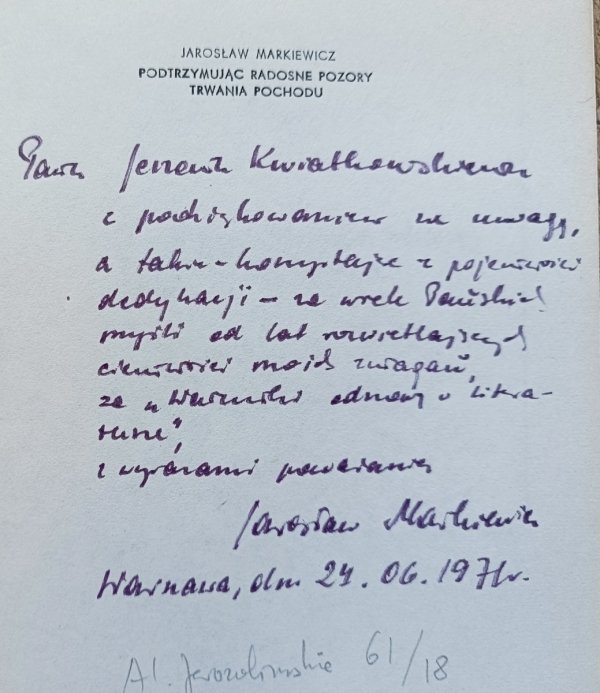 JAROSŁAW MARKIEWICZ
PODTRZYMUJĄC RADOSNE POZORY
TRWANIA POCHODU
Panu Jerzemu Kwiatkowskiemu
z podziękowaniem za uwagę,
a także – korzystając z pojemności
dedykacji – za wiele Pańskich
myśli od lat rozświetlających
ciemności moich zmagań,
za „Warunki odnowy w litera-
turze”,
z wyrazami poważania
Jarosław Markiewicz
Warszawa, dn. 24.06.1971r.
Al. Jerozolimskie 61/18